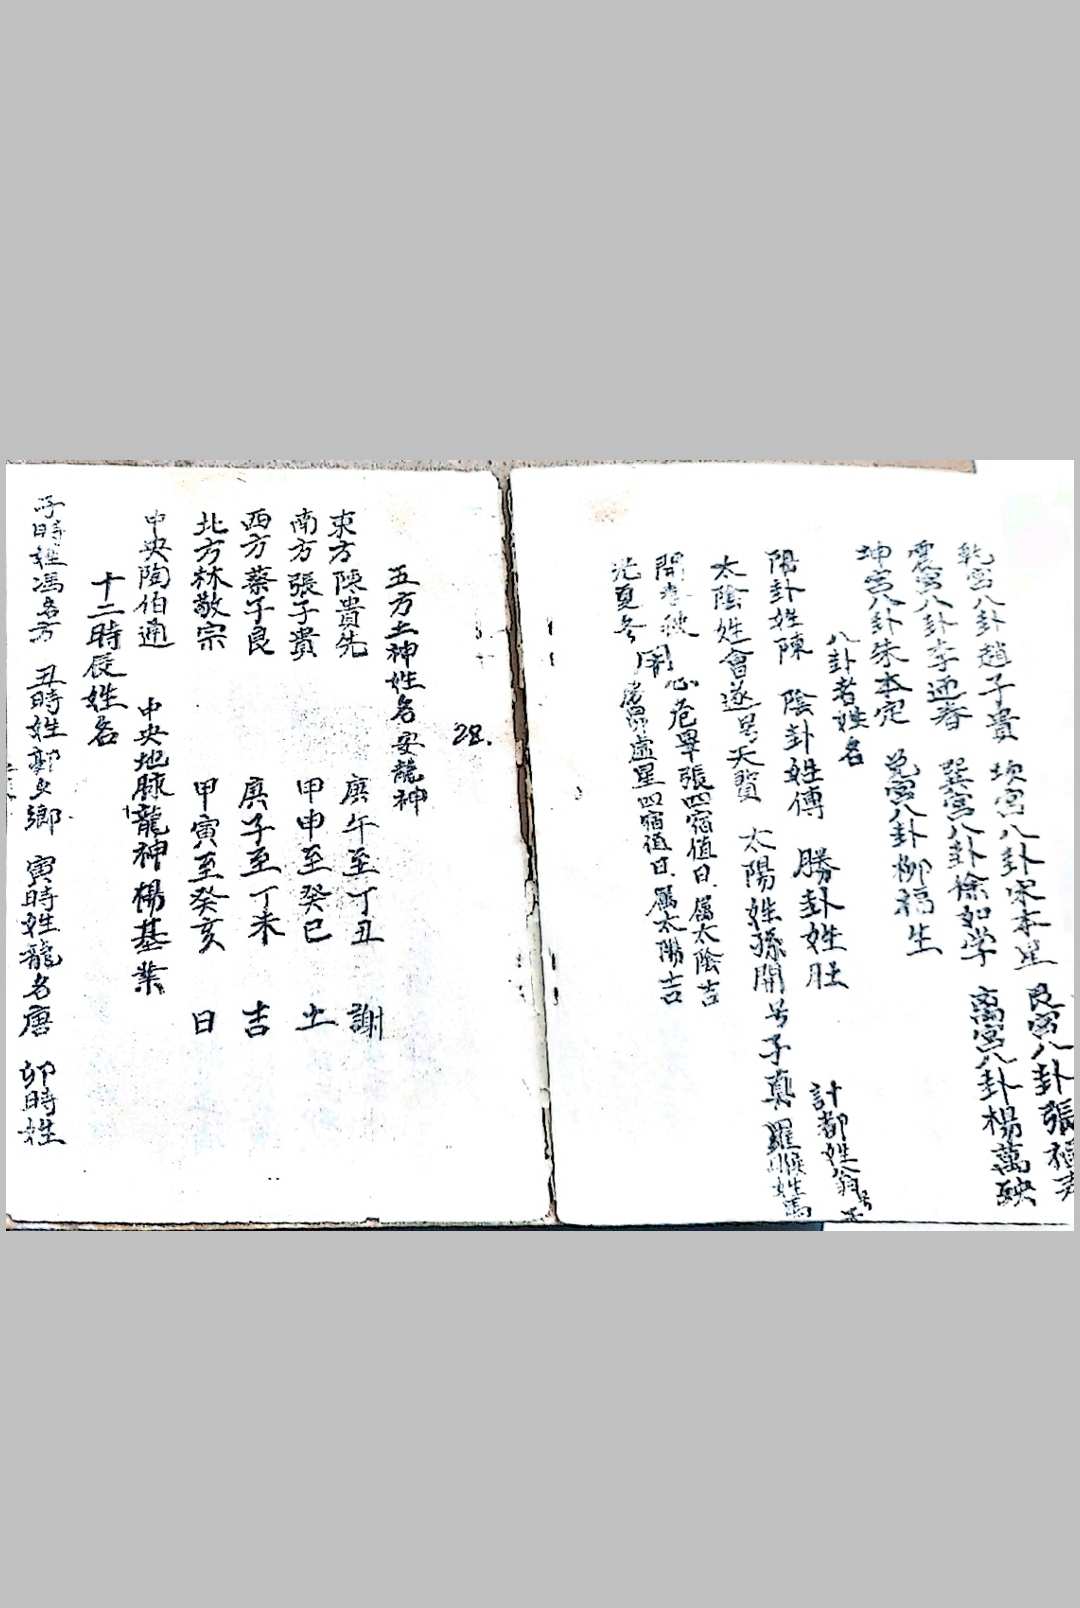 乾宮八卦趙子貴 坎宮八卦宋本星 艮宮八卦張
震宮八卦李迎春 巽宮八卦徐如学 离宮八卦楊萬
坤宮八卦朱本定 兌宮八卦柳福生
八卦者姓名
陽卦姓陳 陰卦姓傅 勝卦姓肚 計都姓翁
太陰姓會遂号天賢 太陽姓孫開号子真 羅㬋姓馬
開 心危畢張四宿值日属太陰吉
房昴虛星四宿值日属太陽吉
28.
五方土神姓名安龍神
東方陳貴先 庚午至丁丑 謝
南方張子貴 甲申至癸巳 土
西方蔡子良 庚子至丁未 吉
北方林敬宗 甲寅至癸亥 日
中央陶伯通 中央地脉龍神楊基業
十二時辰姓名
子時姓馮名方 丑時姓郭夕鄉 寅時姓龍名唐 卯時姓